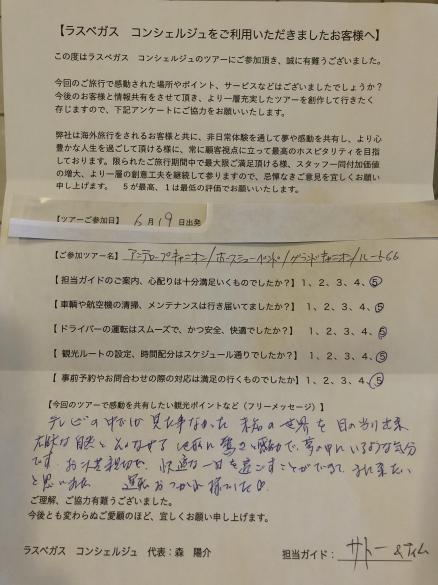 【ラスベガス　コンシェルジュをご利用いただきましたお客様へ】
この度はラスベガス　コンシェルジュのツアーにご参加頂き、誠に有難うございました。
今回のご旅行で感動された場所やポイント、サービスなどはございましたでしょうか？
今後のお客様と情報共有をさせて頂き、より一層充実したツアーを創作して行きたく
存じますので、下記アンケートにご協力をお願いいたします。
弊社は海外旅行をされるお客様と共に、非日常体験を通して夢や感動を共有し、より心
豊かな人生を過ごして頂ける様に、常に顧客視点に立って最高のホスピタリティを目指
しております。限られたご旅行期間中で最大限ご満足頂ける様、スタッフ一同付加価値
の増大、より一層の創意工夫を継続して参りますので、忌憚なきご意見を宜しくお願い
申し上げます。　５が最高、１は最低の評価でお願いいたします。
【ツアーご参加日】 6月19日出発
【ご参加ツアー名】 アンテロープキャニオン/ホースシューベンド/グランドキャニオン/ルート66
【担当ガイドのご案内、心配りは十分満足いくものでしたか？】 1、2、3、4、⑤
【車輌や航空機の清掃、メンテナンスは行き届いてましたか？】 1、2、3、4、⑤
【ドライバーの運転はスムーズで、かつ安全、快適でしたか？】 1、2、3、4、⑤
【 観光ルートの設定、時間配分はスケジュール通りでしたか？】 1、2、3、4、⑤
【 事前予約やお問合わせの際の対応は満足の行くものでしたか】 1、2、3、4、⑤
【今回のツアーで感動を共有したい観光ポイントなど（フリーメッセージ）】
テレビの中でしか見た事なかった 未知の世界を目の当り出来
大好な自然と 地球に驚きと感動で、夢の中にいるような気分
です。 快適な一日を過ごすことができて、また来たい
と思いました。 運転おつかれ様でした♡
ご理解、ご協力有難うございました。
今後とも変わらぬご愛顧のほど、宜しくお願い申し上げます。
ラスベガス　コンシェルジュ　代表：森　陽介
担当ガイド： サトー &ティム